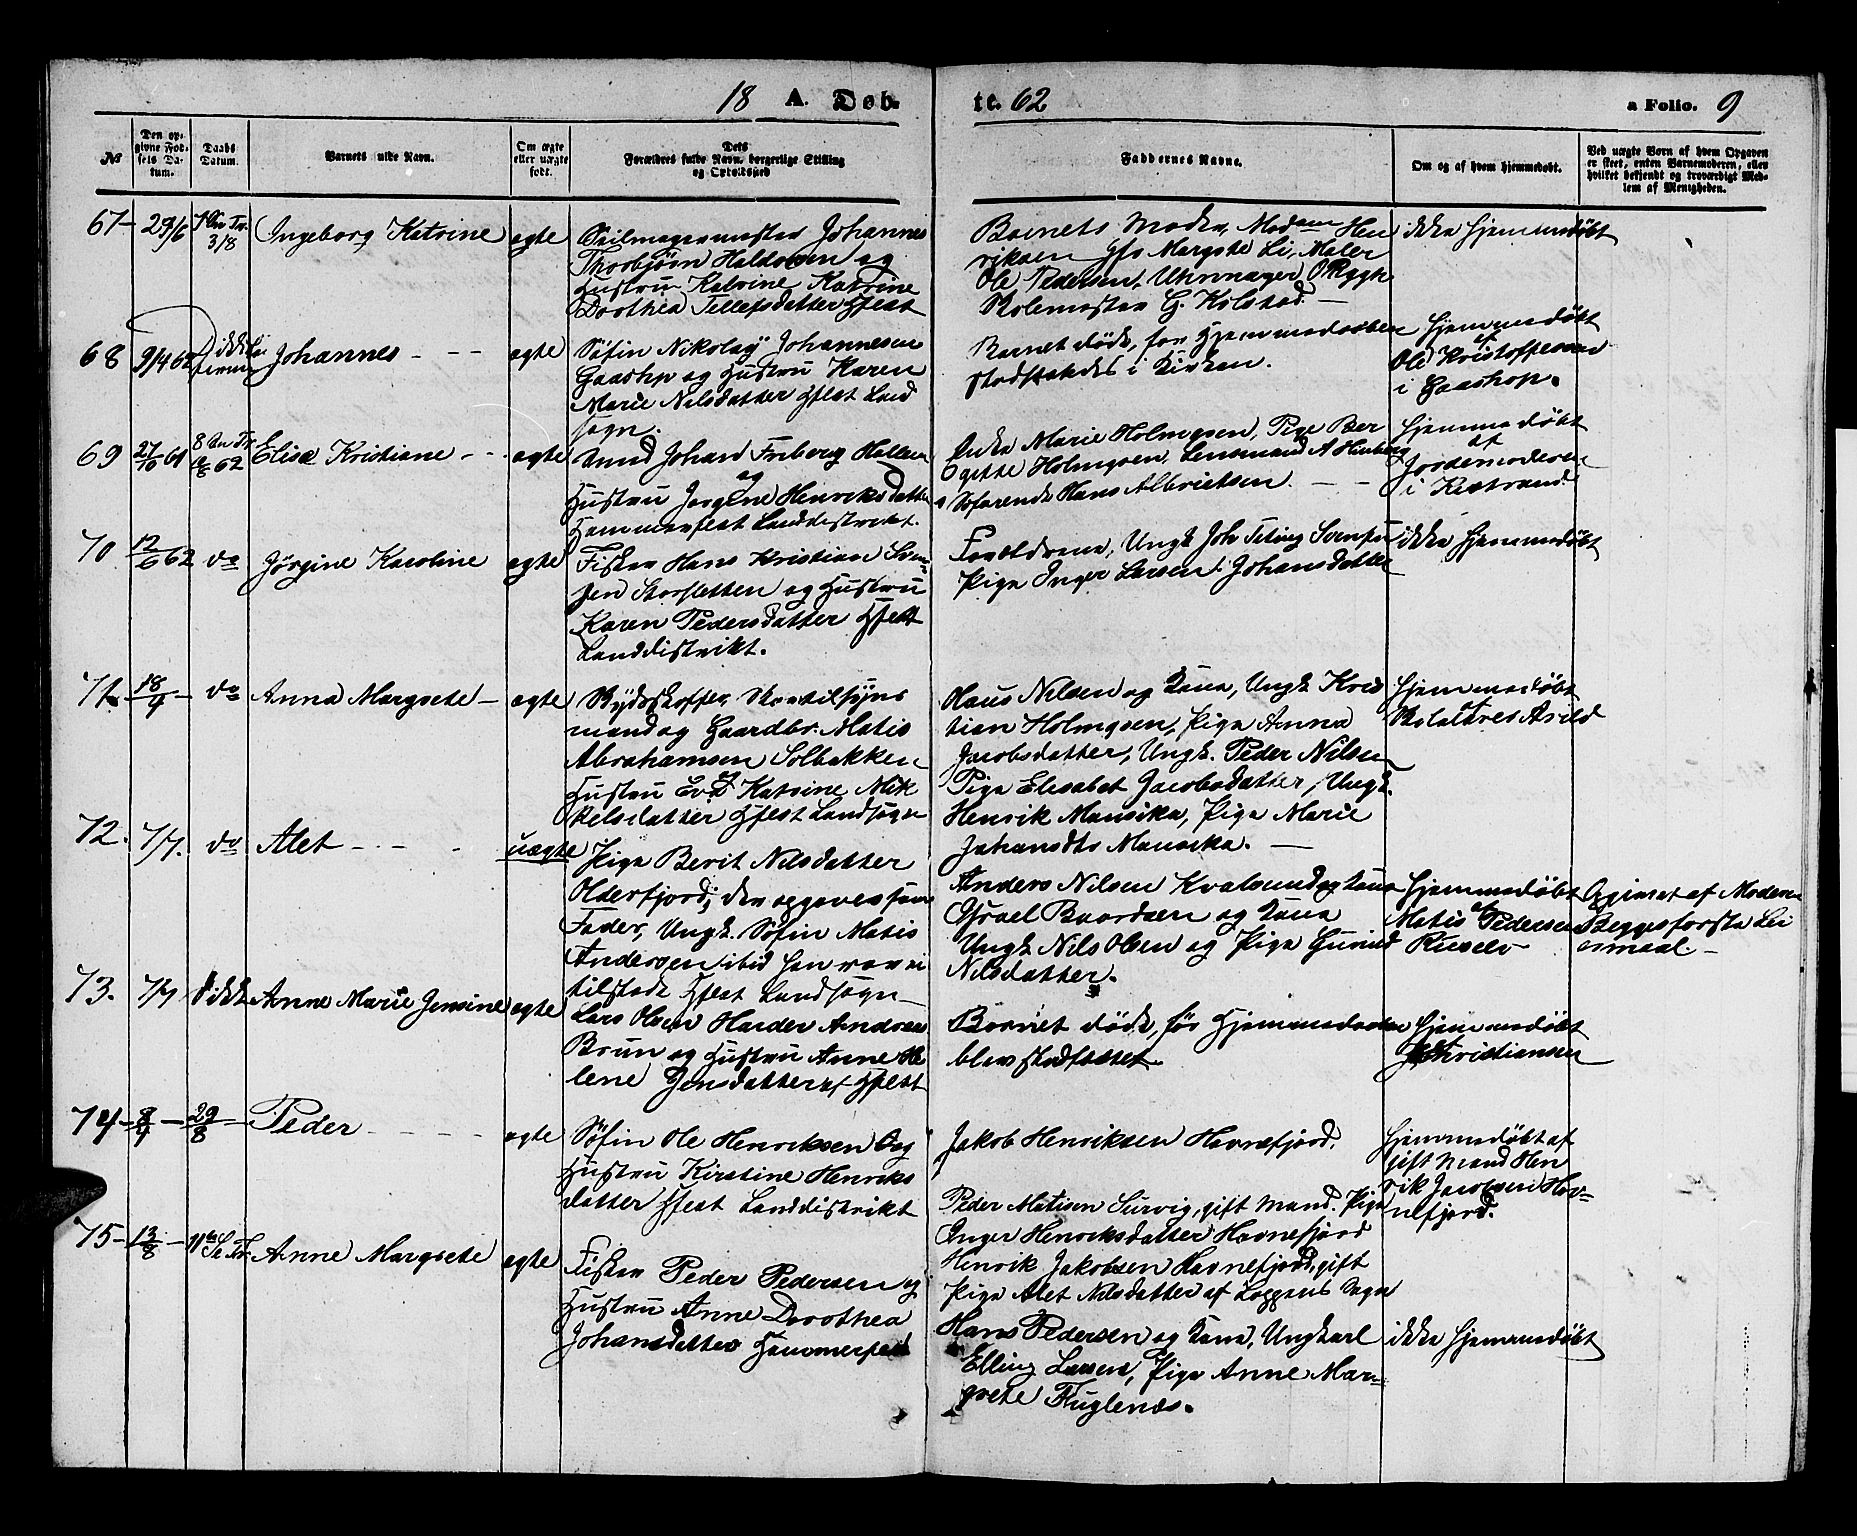 18 A. Døb-
te. 62
a Folio. 9
No
Den op-
givne Fød-
sels Da-
tum.
Daabs
Datum.
Barnets fulde Navn.
Om ægte
eller uægte
født.
Dets
Forældres fulde Navn, borgerlige Stilling
og Opholdssted
Faddernes Navne.
Om og af hvem hjemmedøbt.
Ved uægte Børn af hvem Opgaven
er skeet, enten Barnemoderen, eller
hvilket bekjendt og troværdigt Med-
lem af Menigheden.
67 – 29/6 3/8 Ingeborg Katrine ægte
Seilmagermester Johannes
Thorbjörn Haldorsen og
Hustru Katrine Katrine
Dorthea Tellefsdatter Hfest
Barnets Moder, Madam Hen
riksen Margrete Li, Maler
Ole Pedersen, Uhrmager O Rygh
Skolemester G. Kolstad –
ikke hjemmedøbt
68 9/4 62 Johannes - - - ægte
Søfin Nikolay Johannesen
Gaashp og Hustru Karen
Marie Nilsdatter Hfest Land
sogn.
Barnet døde, før Hjemmedaaben
stadfæstedes i Kirken.
Hjemmedøbt
af
Ole Kristoffersen
i Gaashop.
69 27/6 61 8 Sn Tr 10/8 62 Elise Kristiane - - ægte
Smed Johan Friberg Hallen
og
Hustru Jørgine Henriksdatter
Hammerfest Landdistrikt.
Enke Marie Holmgren, Pige Ber
gitte Holmgren, Lensmand A
Søfarende Hans Albrictsen. - -
Hjemmedøbt
af
Jordemoderen
i Kistrand
70 12/6 62 do Jørgine Karoline ægte
Fisker Hans Kristian Sven-
sen Storsletten og Hustru
Karen Pedersdatter Hfest
Landdistrikt.
Forældrene, Ungk Joh Svensen
Pige Inger Larsen: Johansdatter
ikke hjemmedøbt
71 – 18/4 – do Anna Margrete – ægte
Skydsskaffer,
mand og Gaardbr. Matis
Abrahamsen Solbakken
Hustru Eva Katrine Mik
kelsdatter Hfest Landsogn
Hans Nilsen og Kone, Ungk Kris
tian Holmgren, Pige Anna
Jacobsdatter, Ungk. Peder Nilsen
Pige Elisabet Jacobsdatter, Ungk.
Henrik Mansika, Pige Marie
Johansdtr Mansika. –
Hjemmedøbt
af
72. 7/7. do Alet - - - uægte
Pige Berit Nilsdatter
Olderfjord; den opgaves som
Fader, Ungk. Søfin Matis
Andersen ibid han var ei
tilstede Hfest Landsogn
Anders Nilsen Kvalsund og Kone
Israel og Kone
Ungk Nils Olsen og Pige Gunild
Nilsdatter.
Hjemmedøbt
af
Matis Pedersen
Opgivet af Moderen
Begges første Lei
ermaal –
73. 7/7 ikke Anne Marie Jensine ægte
Lars Olsen Harder Andreas
Brun og Hustru Anne He
lene Jensdatter af Hfest
Barnet døde, før Hjemmedaaben
blev stadfæstet
Hjemmedøbt
Kristiansen
74 – 8/7 – 29/8 – Peder - - - - ægte
Søfin Ole Henriksen og
Hustru Kirstine Henriks
datter Hfest Landdistrikt
Jakob Henriksen Havnefjord.
Peder Matisen Survig, gift Mand. Pige
Inger Henriksdatter Havnefjord
Henrik Jakobsen Havnefjord, gift
Pige Alet Nilsdatter af Loppens Sogn
Hjemmedøbt af
gift Mand Hen
rik Jacobsen Hav-
nefjord.
75 – 13/8 – 11te S Tr Anne Margrete ægte
Fisker Peder Pedersen og
Hustru Anne Dorothea
Johansdatter Hammerfest
Hans Pedersen og Kone, Ungkarl
Elling Larsen, Pige Anne Mar-
grete Fuglenæs.
ikke hjemmedøbt